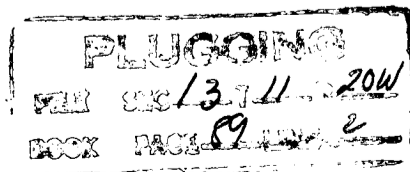 PLUGGING
FILE SEC 13 T 11 R 20W
BOOK PAGE 89 LINE 2